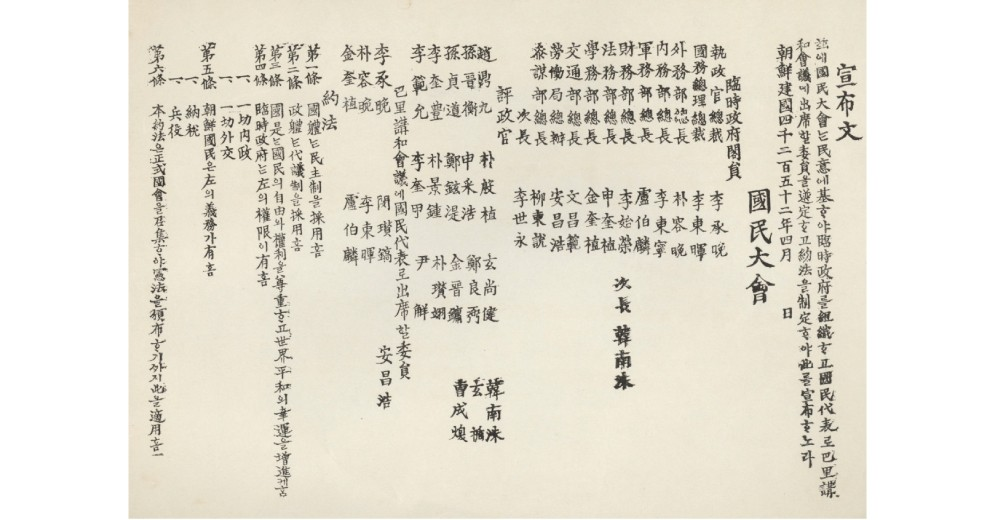 宣布文
玆에國民大會는民意에基ᄒᆞ야臨時政府를組織ᄒᆞ고國民代表로巴里講
和會議에出席할委員을選定ᄒᆞ고約法을制定ᄒᆞ야此를宣布ᄒᆞ노라
朝鮮建國四千二百五十二年四月 日
國民大會
臨時政府閣員
執政官總裁 李承晩
國務總理總裁 李東暉
外務部總長 朴容晩
內務部總長 李東寧
軍務部總長 盧伯麟
財務部總長 李始榮 次長 韓南洙
法務部總長 申奎植
學務部總長 金奎植
交通部總長 文昌範
勞働局總辦 安昌浩
叅謀部總長 柳東說
次長 李世永
評政官
趙鼎九 朴殷植 玄尙健 韓南洙
孫晋衡 申采浩 鄭良弼 玄楯
孫貞道 鄭鉉湜 金晋鏞 曹成煥
李奎豊 朴景鍾 朴瓚翊
李範允 李奎甲 尹解
巴里講和會議에國民代表로出席할委員
李承晩 閔瓚鎬 安昌浩
朴容晩 李東暉
金奎植 盧伯麟
約法
第一條 國軆는民主制을採用홈
第二條 政軆는代議制을採用홈
第三條 國是는國民의自由와權利을尊重ᄒᆞ고世界平和의幸運을增進케홈
第四條 臨時政府는左의權限이有홈
一、一切內政
一、一切外交
第五條 朝鮮國民은左의義務가有홈
一、納稅
一、兵役
第六條 本約法은正式國會을召集ᄒᆞ야憲法을頒布ᄒᆞ기까지此을適用홈